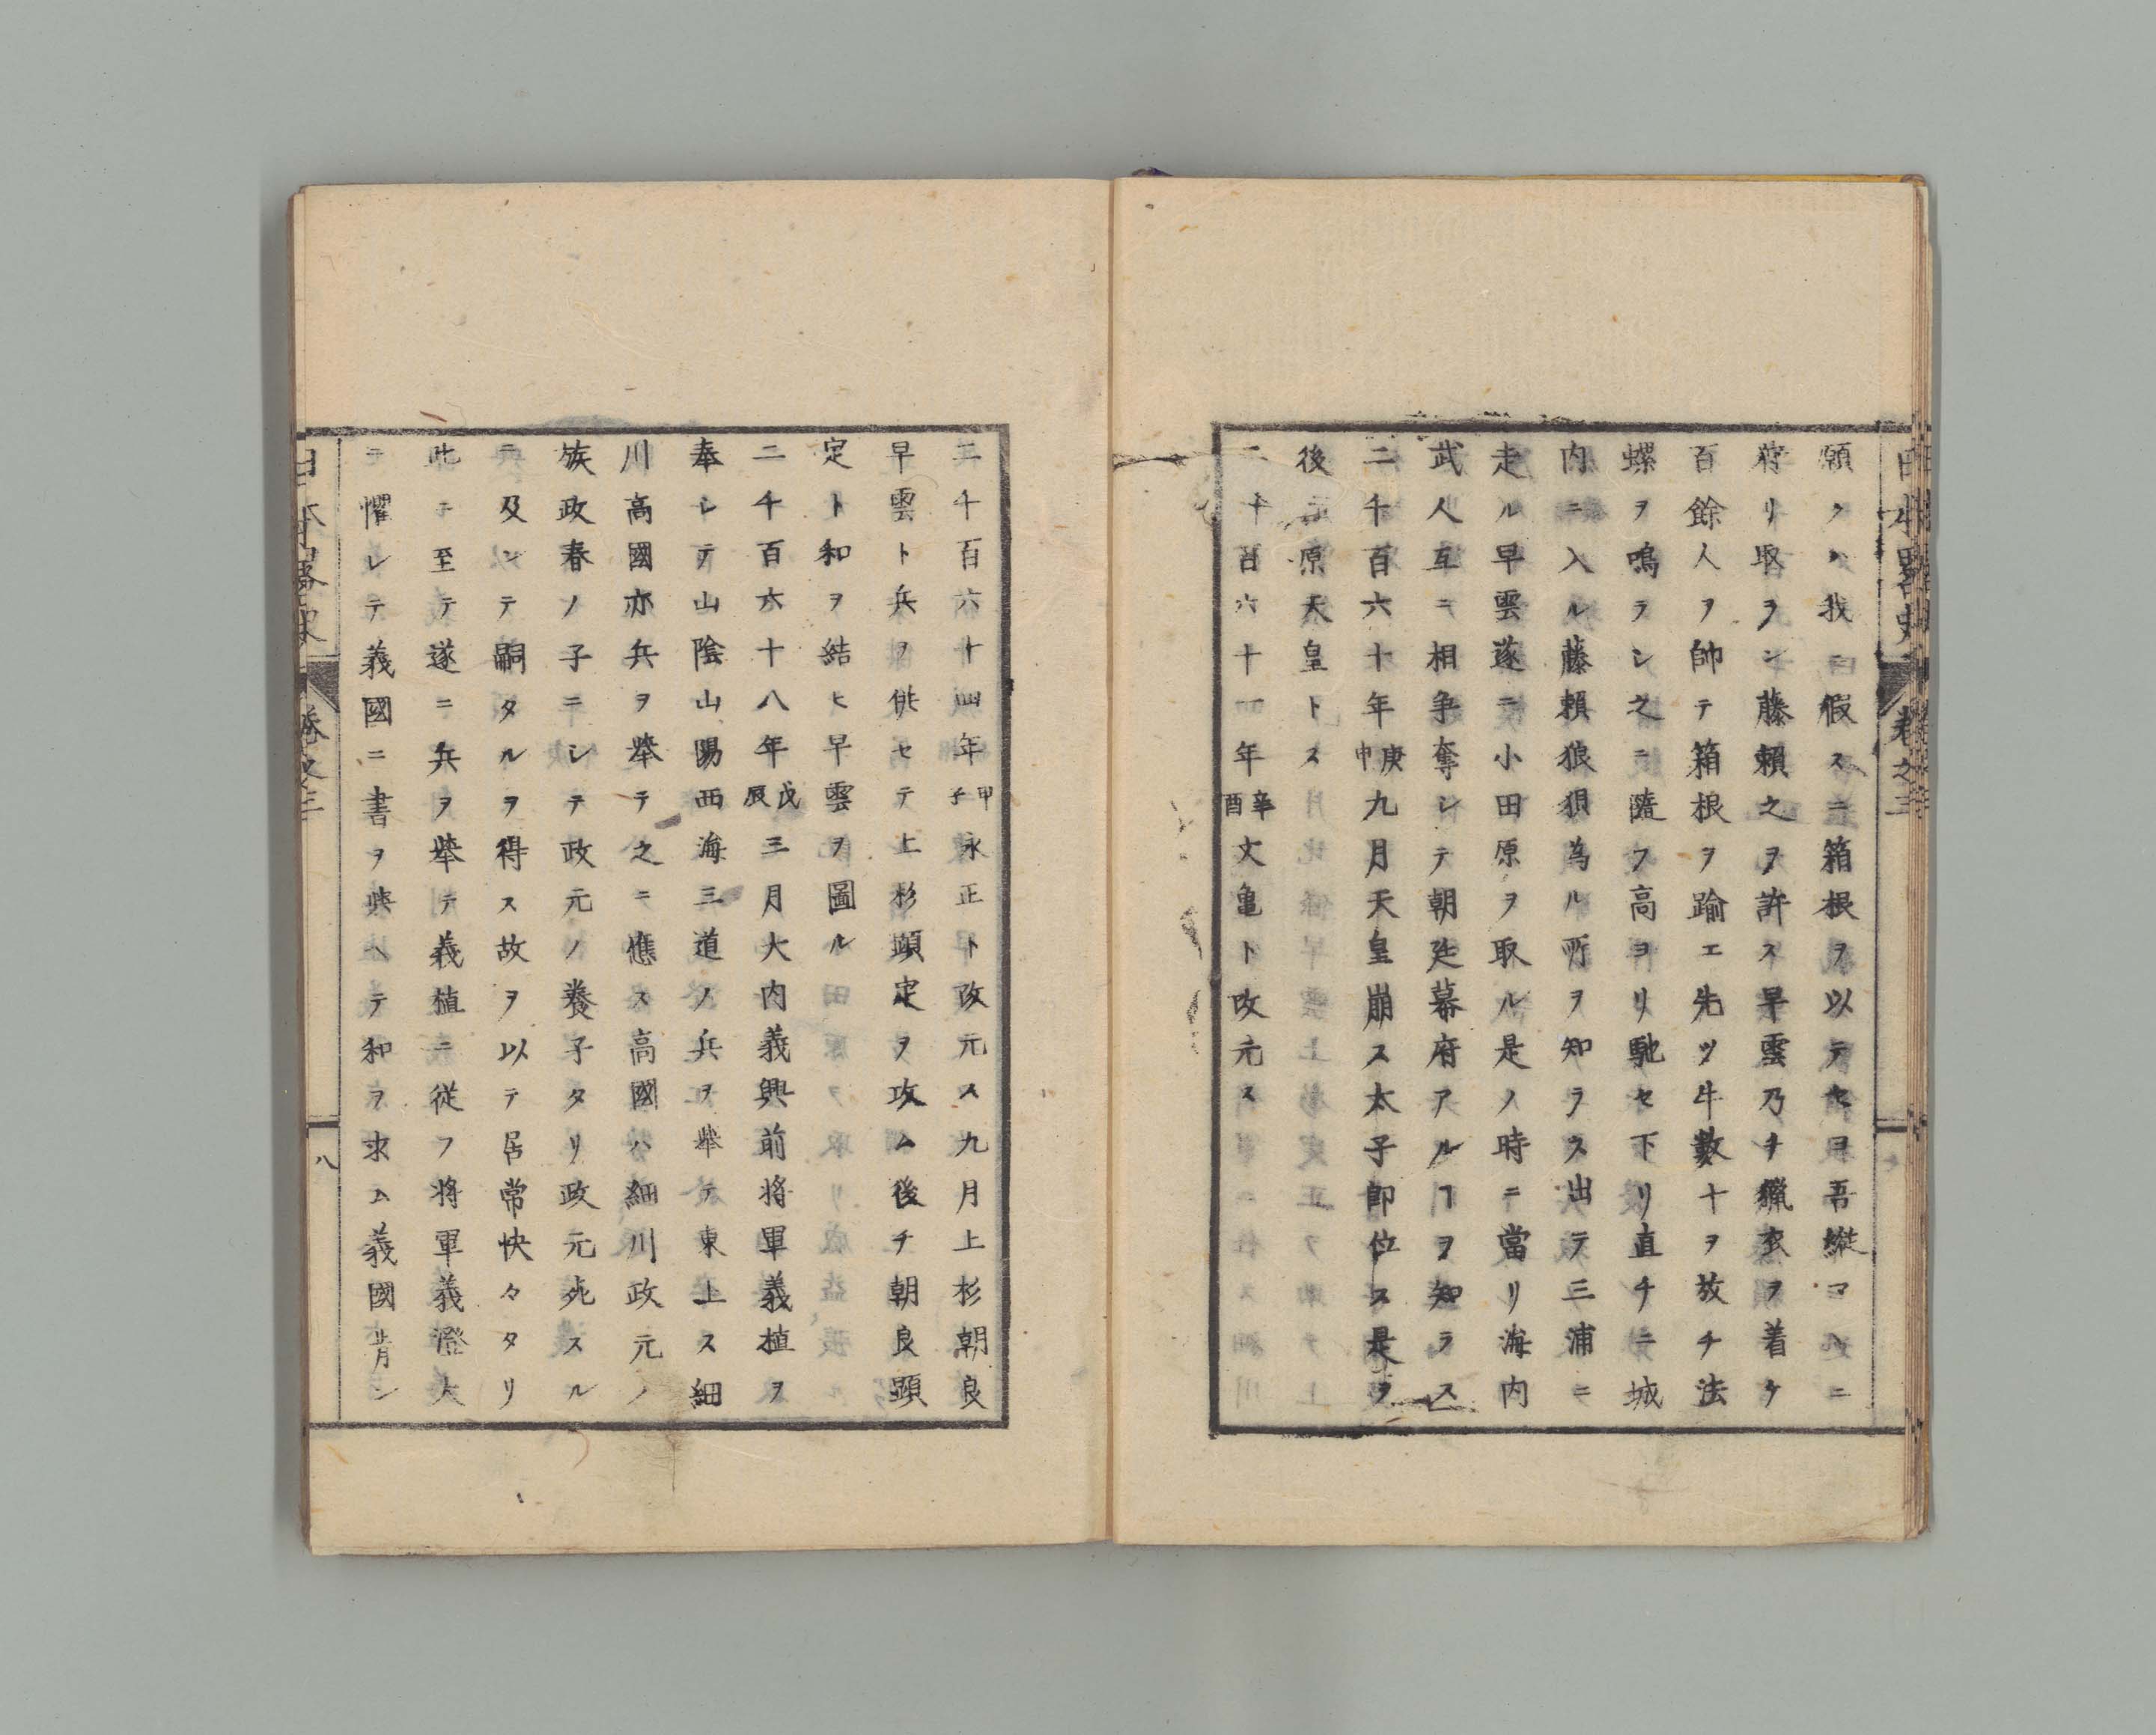 願クハ我ニ假スニ箱根ヲ以テセヨ吾縦マヽニ
狩リ取ヲン藤賴之ヲ許ス早雲乃チ獵衣ヲ着ケ
百餘人ヲ帥テ箱根ヲ踰エ先ツ牛數十ヲ放チ法
螺ヲ鳴ラシ之ニ隨フ高ヨリ馳セ下リ直チニ城
内ニ入ル藤賴狼狽為ル所ヲ知ラス出テ三浦ニ
走ル早雲遂ニ小田原ヲ取ル是ノ時ニ當リ海内
武人互ニ相争奪シテ朝廷幕府アルヿヲ知ラス
二千百六十年庚申九月天皇崩ス太子即位ス是ヲ
後元原天皇トス
二千百六十四年辛酉文亀ト改元ス
二千百六十四年甲子永正ト改元ス九月上杉朝良
早雲ト兵ヲ倂セテ上杉顯定ヲ攻ム後チ朝良顯
定ト和ヲ結ヒ早雲ヲ圖ル
二千百六十八年戊辰三月大内義興前将軍義植ヲ
奉シテ山陰山陽西海三道ノ兵ヲ擧テ東上ス細
川高國亦兵ヲ擧テ之ニ應ス高國ハ細川政元ノ
族政春ノ子ニシテ政元ノ養子タリ政元死スル
ニ及ンテ嗣タルヲ得ス故ヲ以テ居常怏々タリ
此ニ至テ遂ニ兵ヲ擧テ義植ニ從フ将軍義澄大
ニ懼レテ義國ニ書ヲ與ヘテ和ヲ求ム義國肯ン
日本畧史 卷之三 八